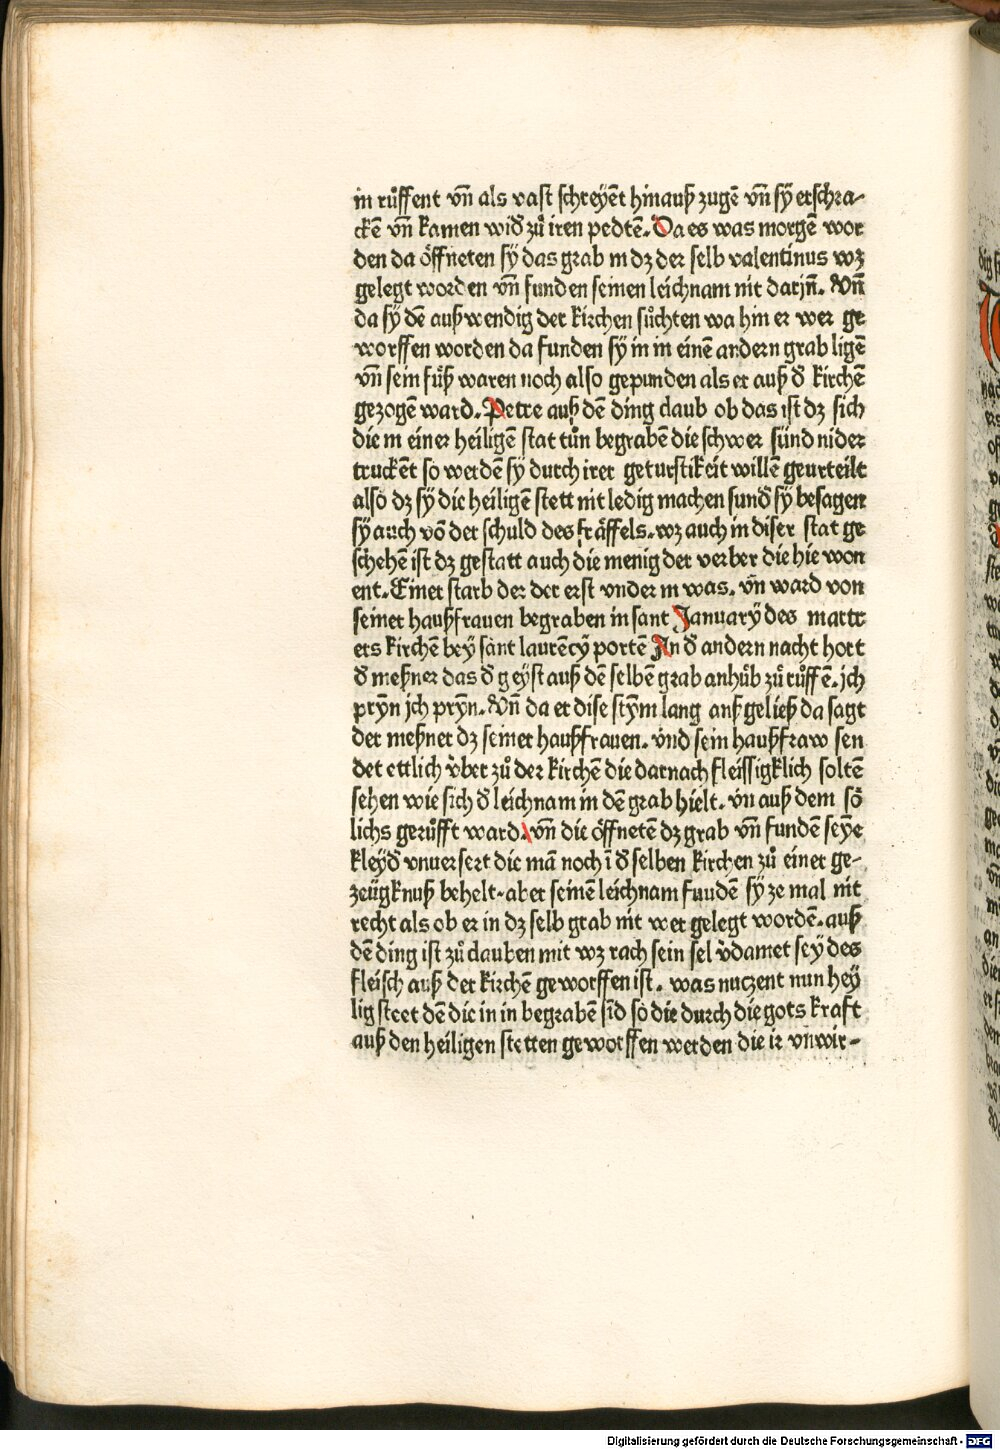 in růffent vñ als vast schreyēt hinauß zugē vñ sÿ erschra-
ckē vñ kamen wiđ zů iren pedtē. Da es was morgē wor
den da öffneten sÿ das grab in dz der selb valentinus wz
gelegt worden vñ funden seinen leichnam nit darjñ. Vñ
da sÿ dē außwendig der kirchen sůchten wa hin er wer ge
worffen worden da funden sÿ in in einē andern grab ligē
vñ sein fůß waren noch also gepunden als er auß đ kirchē
gezogē ward. Petre auß dē ding claub ob das ist dz sich
die in einer heiligē stat tůn begrabē die schwer sünd nider
truckēt so werdē sÿ durch irer geturstikeit willē geurteilt
also dz sÿ die heiligē stett nit ledig machen sunđ sÿ besagen
sÿ auch vō der schuld des fräffels. wz auch in diser stat ge
schehē ist dz gestatt auch die menig der verber die hie won
ent. Einer starb der der erst vnder in was. vñ ward von
seiner haußfrauen begraben in sant Januarÿ des martr
ers kirchē beÿ sant laurēcÿ portē In đ andern nacht hort
đ meßner das đ geÿst auß dē selbē grab anhůb zů růffē. ich
prÿn jch prÿn. Vñ da er dise stÿm lang auß geließ da sagt
der meßner dz seiner haußfrauen. vnd sein haußfraw sen
det ettlich v̈ber zů der kirchē die darnach fleissigklich soltē
sehen wie sich đ leichnam in dē grab hielt. vñ auß dem sö
lichs gerůfft ward. vñ die öffnetē dz grab vñ fundē seÿe
kleÿđ vnuersert die mā noch ī đ selben kirchen zů einer ge-
zeügknuß behelt. aber seinē leichnam fuudē sÿ ze mal nit
recht als ob er in dz selb grab nit wer gelegt wordē. auß
dē ding ist zů dauben mit wz rach sein sel v̈damet seÿ des
fleisch auß der kirchē geworffen ist. was nutzent nun heÿ
lig steet dē die in in begrabē sīd so die durch die gots kraft
auß den heiligen stetten geworffen werden die ir vnwir-
Digitalisierung gefördert durch die Deutsche Forschungsgemeinschaft - DFG